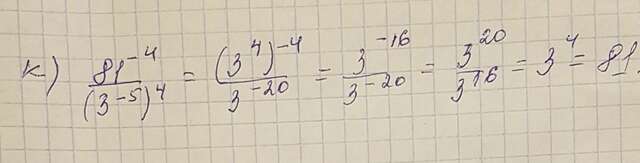 к) 81^{-4}/(3^{-5})^4 = (3^4)^{-4}/3^{-20} = 3^{-16}/3^{-20} = 3^{20}/3^{16} = 3^4 = 81.